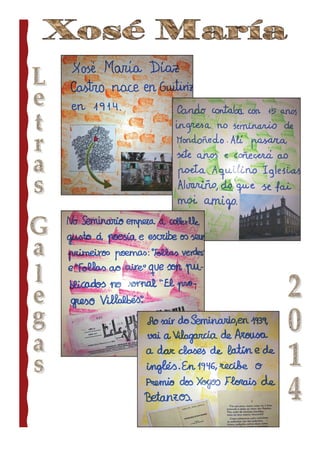 Xosé María
Letras
Galegas
2014
Xosé María Díaz
Castro nace en Guitiriz
en 1914.
Cando contaba con 15 anos
ingresa no seminario de
Mondoñedo. Alí pasara
sete anos e coñecerá ao
poeta Aquilino Iglesias
Alvariño, do que se fai
moi amigo.
No Seminario empeza a collerlle
gusto á poesía e escribe os seus
primeiros poemas: "Follas verdes
e "Follas ao aire" que son pu-
blicados no xornal "El pro-
greso Villalbés".
Ao saír do Seminario, en 1939,
vai a Vilagarcía de Arousa
a dar clases de latín e de
inglés. En 1946, recibe o
Premio dos Xogos Florais de
Betanzos.